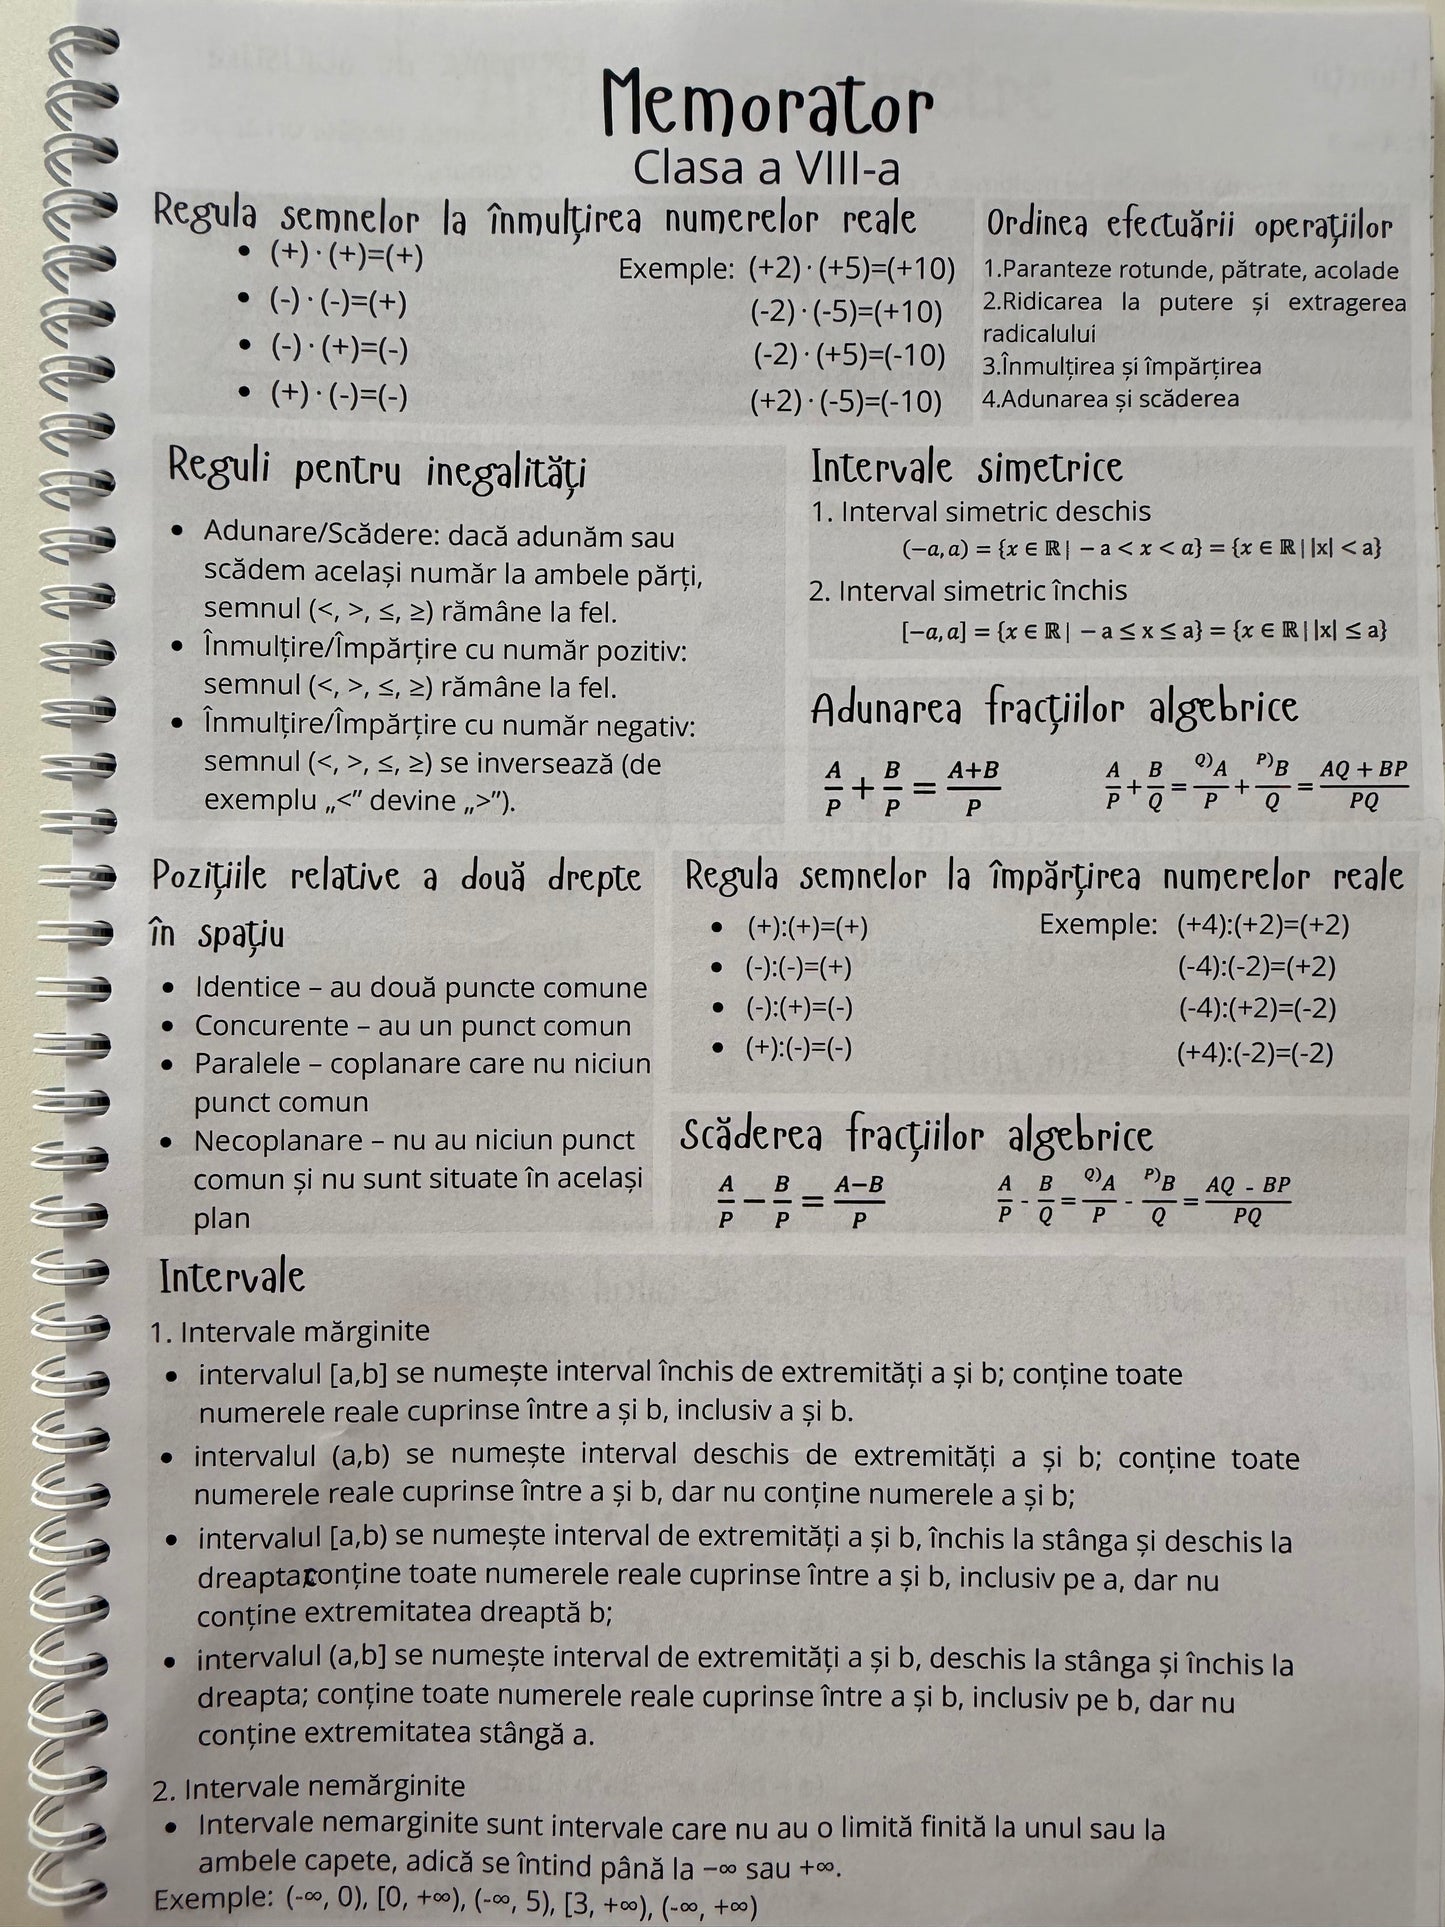 Memorator
Clasa a VIII-a
Regula semnelor la înmulțirea numerelor reale
• (+) · (+)=(+)
• (-) · (-)=(+)
• (-) · (+)=(-)
• (+) · (-)=(-)
Exemple: (+2) · (+5)=(+10)
(-2) · (-5)=(+10)
(-2) · (+5)=(-10)
(+2) · (-5)=(-10)
Ordinea efectuării operațiilor
1.Paranteze rotunde, pătrate, acolade
2.Ridicarea la putere și extragerea
radicalului
3.Înmulțirea și împărțirea
4.Adunarea și scăderea
Reguli pentru inegalități
• Adunare/Scădere: dacă adunăm sau
scădem același număr la ambele părți,
semnul (<, >, ≤, ≥) rămâne la fel.
• Înmulțire/Împărțire cu număr pozitiv:
semnul (<, >, ≤, ≥) rămâne la fel.
• Înmulțire/Împărțire cu număr negativ:
semnul (<, >, ≤, ≥) se inversează (de
exemplu „<” devine „>”).
Intervale simetrice
1. Interval simetric deschis
(−a, a) = {x ∈ ℝ | − a < x < a} = {x ∈ ℝ | |x| < a}
2. Interval simetric închis
[−a, a] = {x ∈ ℝ | − a ≤ x ≤ a} = {x ∈ ℝ | |x| ≤ a}
Adunarea fracțiilor algebrice
A/P + B/P = A+B/P
A/P + B/Q = Q)A/P + P)B/Q = AQ + BP/PQ
Pozițiile relative a două drepte
în spațiu
• Identice – au două puncte comune
• Concurente – au un punct comun
• Paralele – coplanare care nu niciun
punct comun
• Necoplanare – nu au niciun punct
comun și nu sunt situate în același
plan
Regula semnelor la împărțirea numerelor reale
• (+):(+)=(+)
• (-):(-)=(+)
• (-):(+)=(-)
• (+):(-)=(-)
Exemple: (+4):(+2)=(+2)
(-4):(-2)=(+2)
(-4):(+2)=(-2)
(+4):(-2)=(-2)
Scăderea fracțiilor algebrice
A/P − B/P = A−B/P
A/P - B/Q = Q)A/P - P)B/Q = AQ - BP/PQ
Intervale
1. Intervale mărginite
• intervalul [a,b] se numește interval închis de extremități a și b; conține toate
numerele reale cuprinse între a și b, inclusiv a și b.
• intervalul (a,b) se numește interval deschis de extremități a și b; conține toate
numerele reale cuprinse între a și b, dar nu conține numerele a și b;
• intervalul [a,b) se numește interval de extremități a și b, închis la stânga și deschis la
dreapta conține toate numerele reale cuprinse între a și b, inclusiv pe a, dar nu
conține extremitatea dreaptă b;
• intervalul (a,b] se numește interval de extremități a și b, deschis la stânga și închis la
dreapta; conține toate numerele reale cuprinse între a și b, inclusiv pe b, dar nu
conține extremitatea stângă a.
2. Intervale nemărginite
• Intervale nemarginite sunt intervale care nu au o limită finită la unul sau la
ambele capete, adică se întind până la −∞ sau +∞.
Exemple: (-∞, 0), [0, +∞), (-∞, 5), [3, +∞), (-∞, +∞)